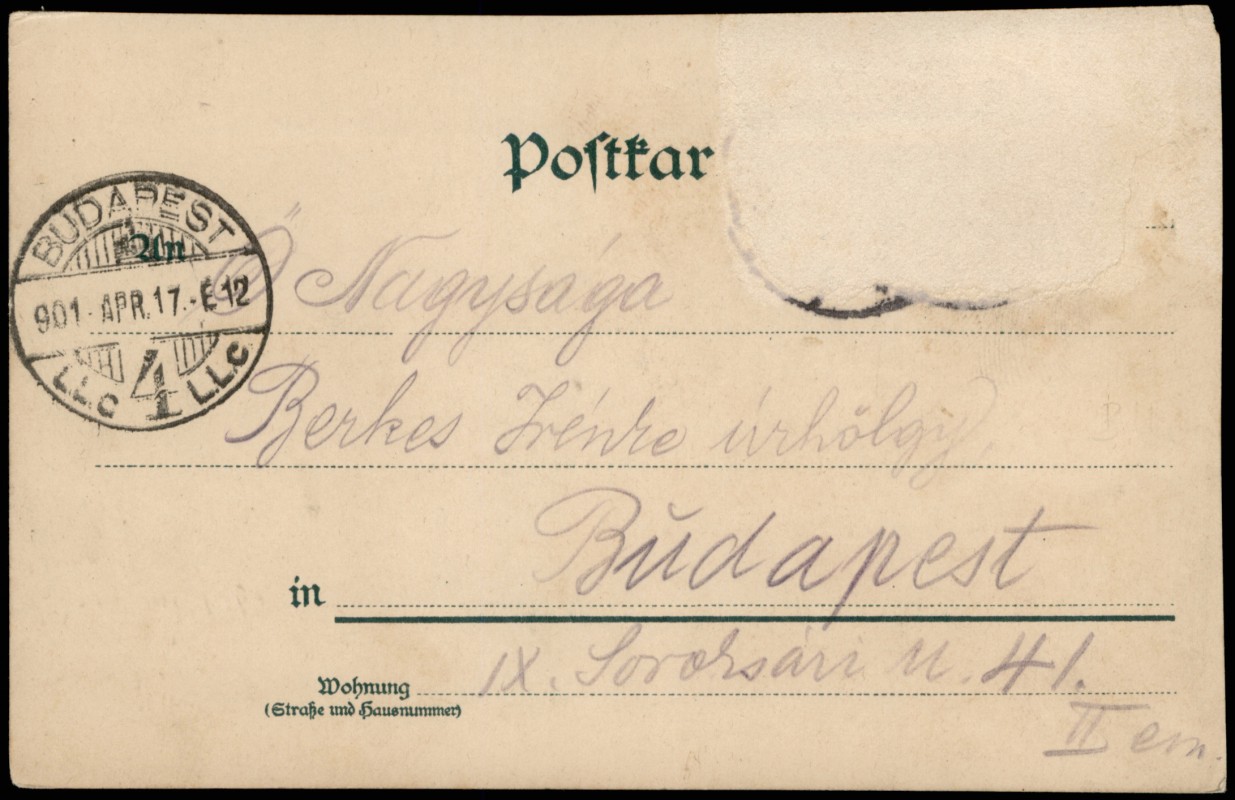 Postkar
BUDAPEST
901. APR. 17. E 12
4
An
Ő Nagysága
Berkes Irénke úrhölgy
in Budapest
Wohnung IX. Soroksári u. 41.
(Straße und Hausnummer)
II em.